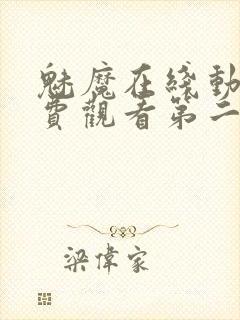 魅魔在綫動
費觀看第二
梁偉家